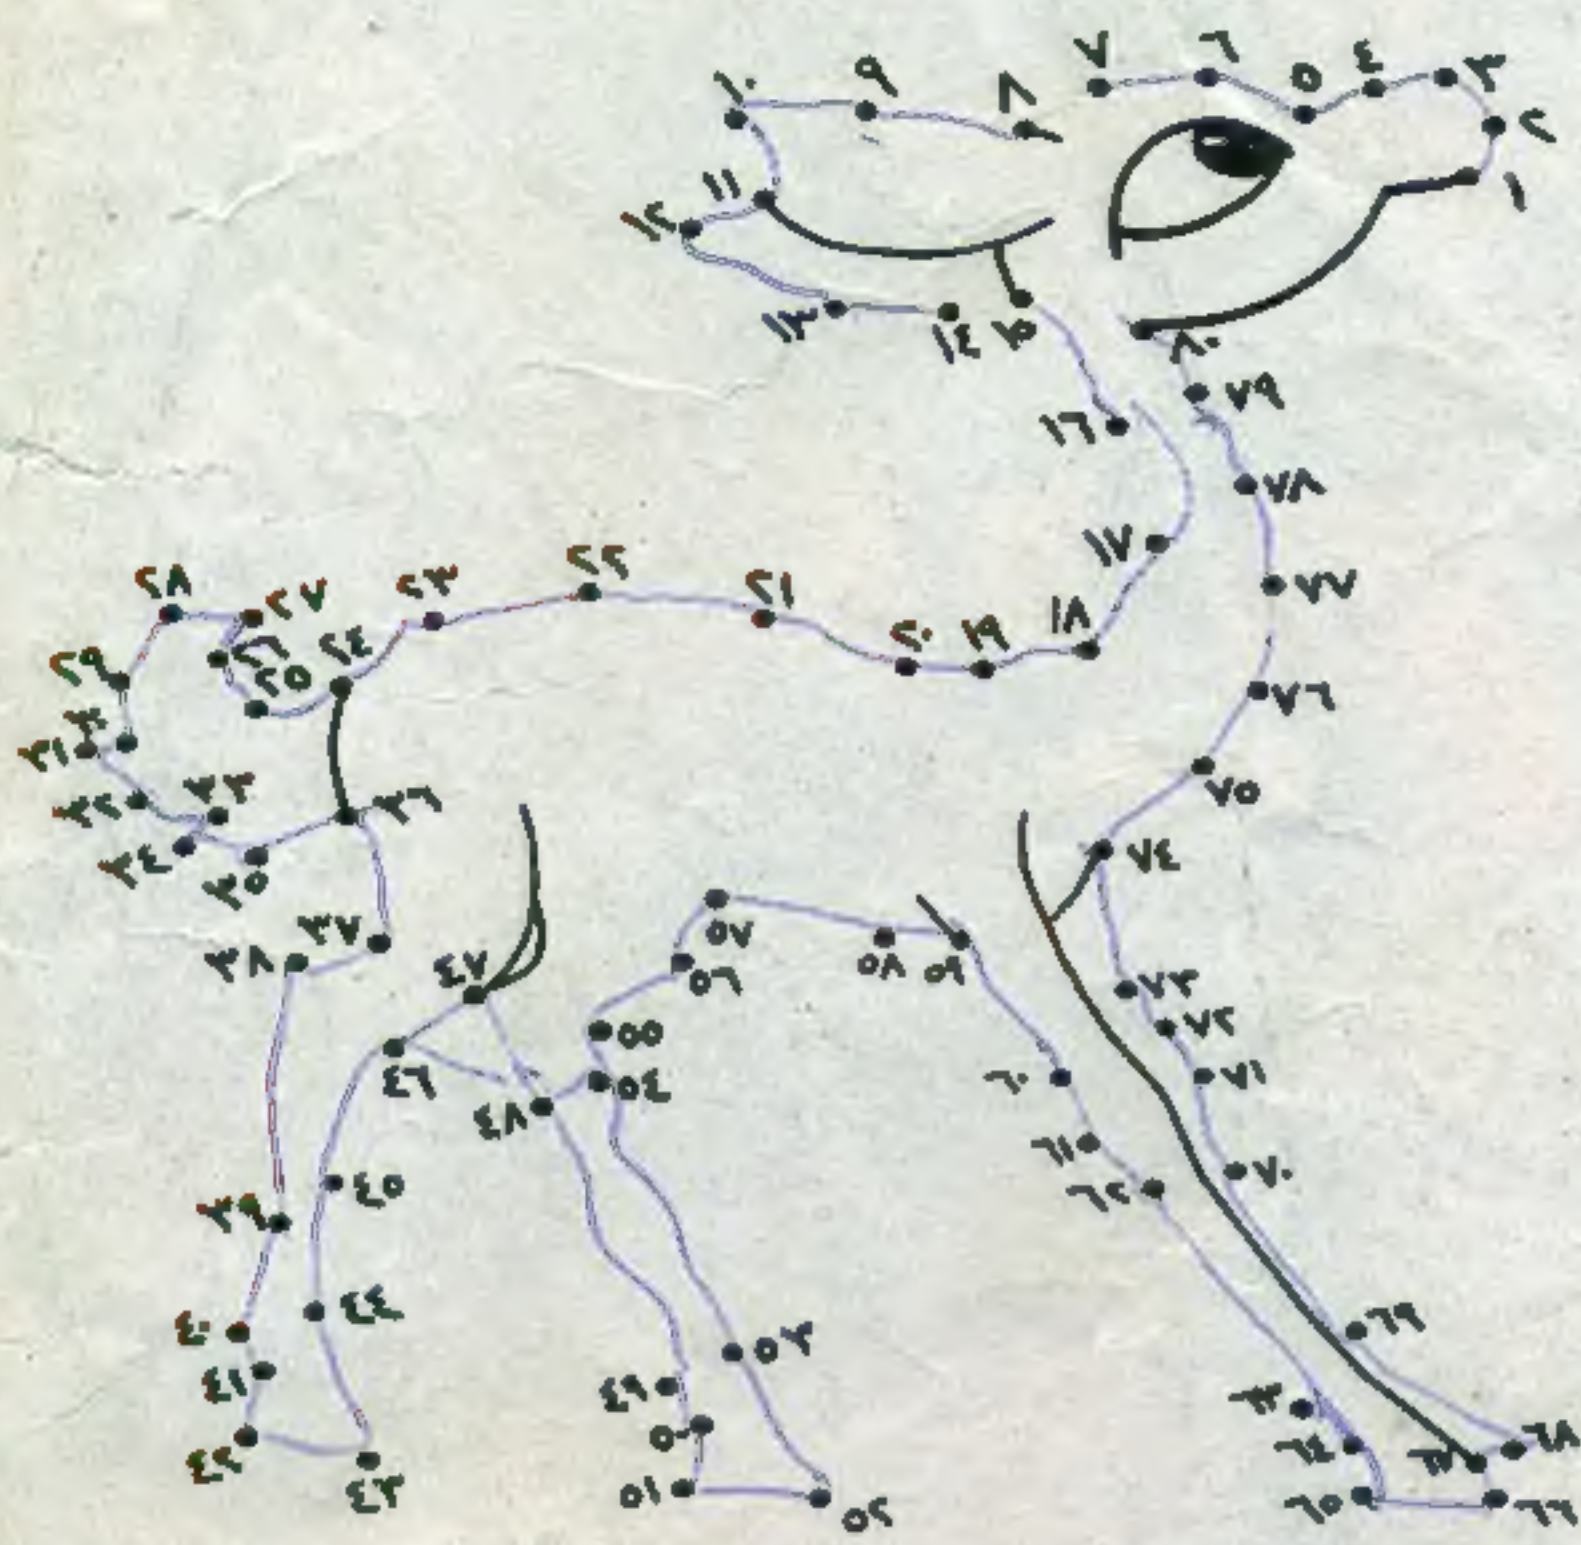 ١
٢
٣
٤
٥
٦
٧
٨
٩
١٠
١١
١٢
١٣
١٤
١٥
١٦
١٧
١٨
١٩
٢٠
٢١
٢٢
٢٣
٢٤
٢٥
٢٦
٢٧
٢٨
٢٩
٣٠
٣١
٣٢
٣٣
٣٤
٣٥
٣٦
٣٧
٣٨
٣٩
٤٠
٤١
٤٢
٤٣
٤٤
٤٥
٤٦
٤٧
٤٨
٤٩
٥٠
٥١
٥٢
٥٣
٥٤
٥٥
٥٦
٥٧
٥٨
٥٩
٦٠
٦١
٦٢
٦٣
٦٤
٦٥
٦٦
٦٧
٦٨
٦٩
٧٠
٧١
٧٢
٧٣
٧٤
٧٥
٧٦
٧٧
٧٨
٧٩
٨٠